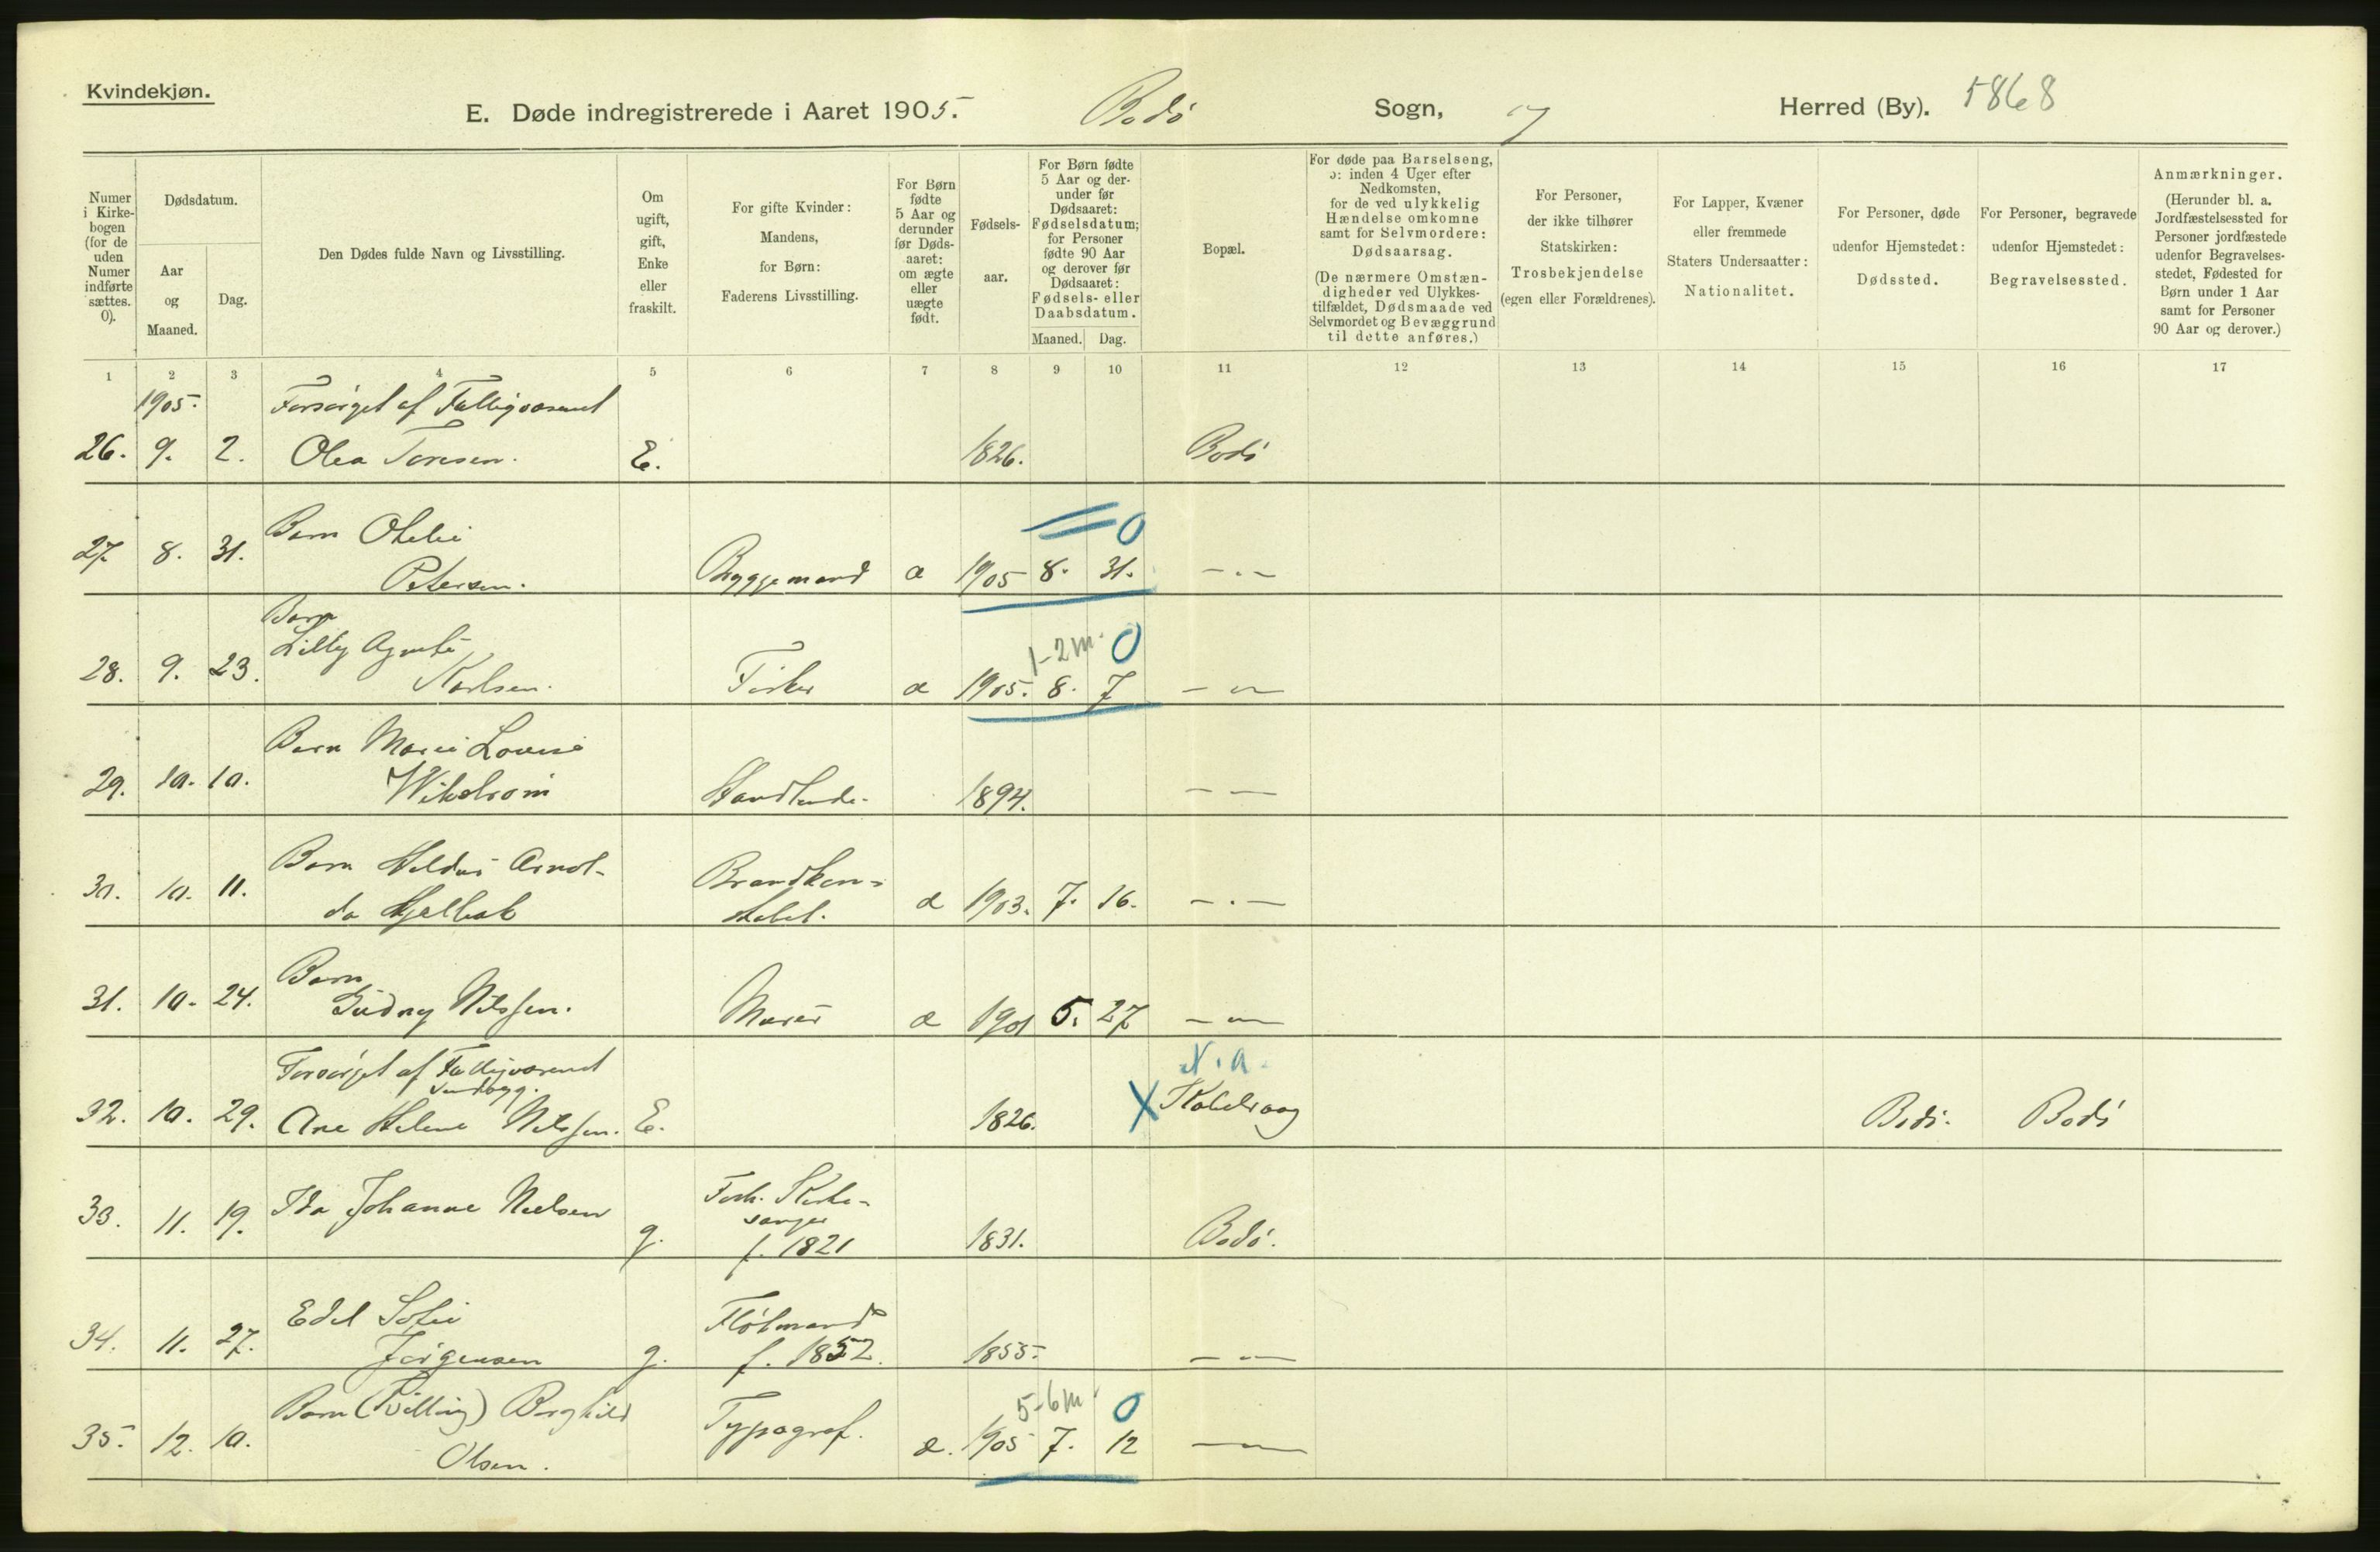 Kvindekjøn.
E. Døde indregistrerede i Aaret 1905. Bodø Sogn, Herred (By). 5868
Numer i Kirkebogen (for de uden Numer indførte sættes. 0).
Dødsdatum.
Aar og Maaned.
Dag.
Den Dødes fulde Navn og Livsstilling.
Om ugift, gift, Enke eller fraskilt.
For gifte Kvinder: Mandens, for Børn: Faderens Livsstilling.
For Børn fødte 5 Aar og derunder før Dødsaaret: om ægte eller uægte født.
Fødselsaar.
For Børn fødte 5 Aar og derunder før Dødsaaret: Fødselsdatum; for Personer fødte 90 Aar og derover før Dødsaaret: Fødsels- eller Daabsdatum.
Maaned. Dag.
Bopæl.
For døde paa Barselseng, ɔ: inden 4 Uger efter Nedkomsten, for de ved ulykkelig Hændelse omkomne samt for Selvmordere: Dødsaarsag.
(De nærmere Omstændigheder ved Ulykkestilfældet, Dødsmaade ved Selvmordet og Bevæggrund til dette anføres.)
For Personer, der ikke tilhører Statskirken: Trosbekjendelse (egen eller Forældrenes).
For Lapper, Kvæner eller fremmede Staters Undersaatter: Nationalitet.
For Personer, døde udenfor Hjemstedet: Dødssted.
For Personer, begravede udenfor Hjemstedet: Begravelsessted.
Anmærkninger.
(Herunder bl. a. Jordfæstelsessted for Personer jordfæstede udenfor Begravelsesstedet, Fødested for Børn under 1 Aar samt for Personer 90 Aar og derover.)
1 2 3 4 5 6 7 8 9 10 11 12 13 14 15 16 17
1905. Forsørget af Fattigvæsenet
26. 9. 2. Olea Toresen. E. 1826. Bodø
0
27. 8. 31. Barn Otelie Petersen. Bryggemand æ 1905 8. 31. — " —
1-2 m. 0
28. 9. 23. Barn Lilly Agnete Karlsen. Fisker æ 1905. 8. 7 — " —
29. 10. 10. Barn Marie Lovise Wikstrøm Handlende. 1894. — " —
30. 10. 11. Barn Arnolda æ 1903. 7. 16. — " —
31. 10. 24. Barn Gudny Nilssen. Murer æ 1901 5. 27 — " —
Forsørget af Fattigvæsenet N. a.
32. 10. 29. Ane Helene Nilssen. E. 1826. X Kabelvaag Bodø. Bodø
33. 11. 19. Ida Johanne Nielsen g. Forh. Kirkesanger f. 1821 1831. Bodø.
34. 11. 27. Edel Sofie Jørgensen g. f. 1852. 1855. — " —
5-6 m 0
35. 12. 10. Barn (Tvilling) Borghild Olsen. Typograf. æ. 1905 7. 12 — " —